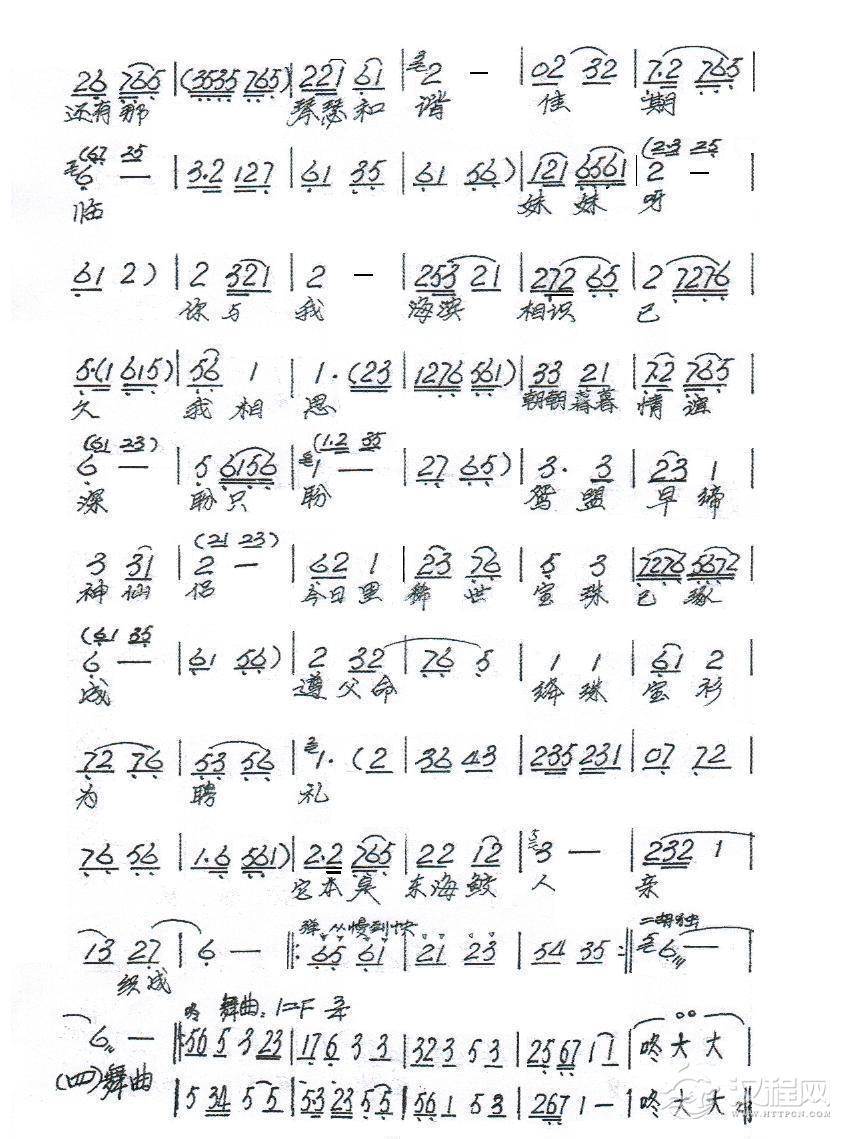 26 765 | (3535 765) | 221 61 | 2 — | 02 32 | 7.2 765 |
还有那 琴瑟和 谐 佳 期
(67 35
6 — | 3.2 127 | 61 35 | 61 56) | 121 6561 | 2 — |
(2.3 25
临 妹 妹 呀
61 2) | 2 321 | 2 — | 253 21 | 272 65 | 2 7276 |
你与 我 海滨 相识 已
5.(1 615) | 56 1 | 1.(23 | 1276 561) | 33 21 | 72 765 |
久 我 相 思 朝朝暮暮 情谊
(61 23) (1.2 35
6 — | 5 6156 | 1 — | 27 65) | 3. 3 | 23 1 |
深 盼只 盼 鸳 盟 早 缔
(21 23)
3 31 | 2 — | 62 1 | 23 76 | 5 3 | 7276 5672 |
神仙 侣 今日里 稀 世 宝 珠 已 琢
(61 35
6 — | 61 56) | 2 32 | 76 5 | 1 1 | 61 2 |
成 遵父命 绛珠 宝衫
72 76 | 53 56 | 1.(2 | 36 43 | 235 231 | 07 72 |
为 聘 礼
76 56 | 1.6 561) | 2.2 765 | 22 12 | 3 — | 232 1 |
它本是 东海鲛 人 亲
弹、从慢到快 二胡独
13 27 | 6 — ‖: 65 61 | 21 23 | 54 35 :‖ 6 —
织成
舞曲:1=F
6 — ‖ 56 5 3 23 | 17 6 3 3 | 32 3 5 3 | 25 67 1 1 | 咚 大 大
(四)舞曲
| 5 34 5 5 | 53 23 5 5 | 56 1 5 3 | 267 1 — | 咚大大
汉程网
WWW.HTTPCN.COM